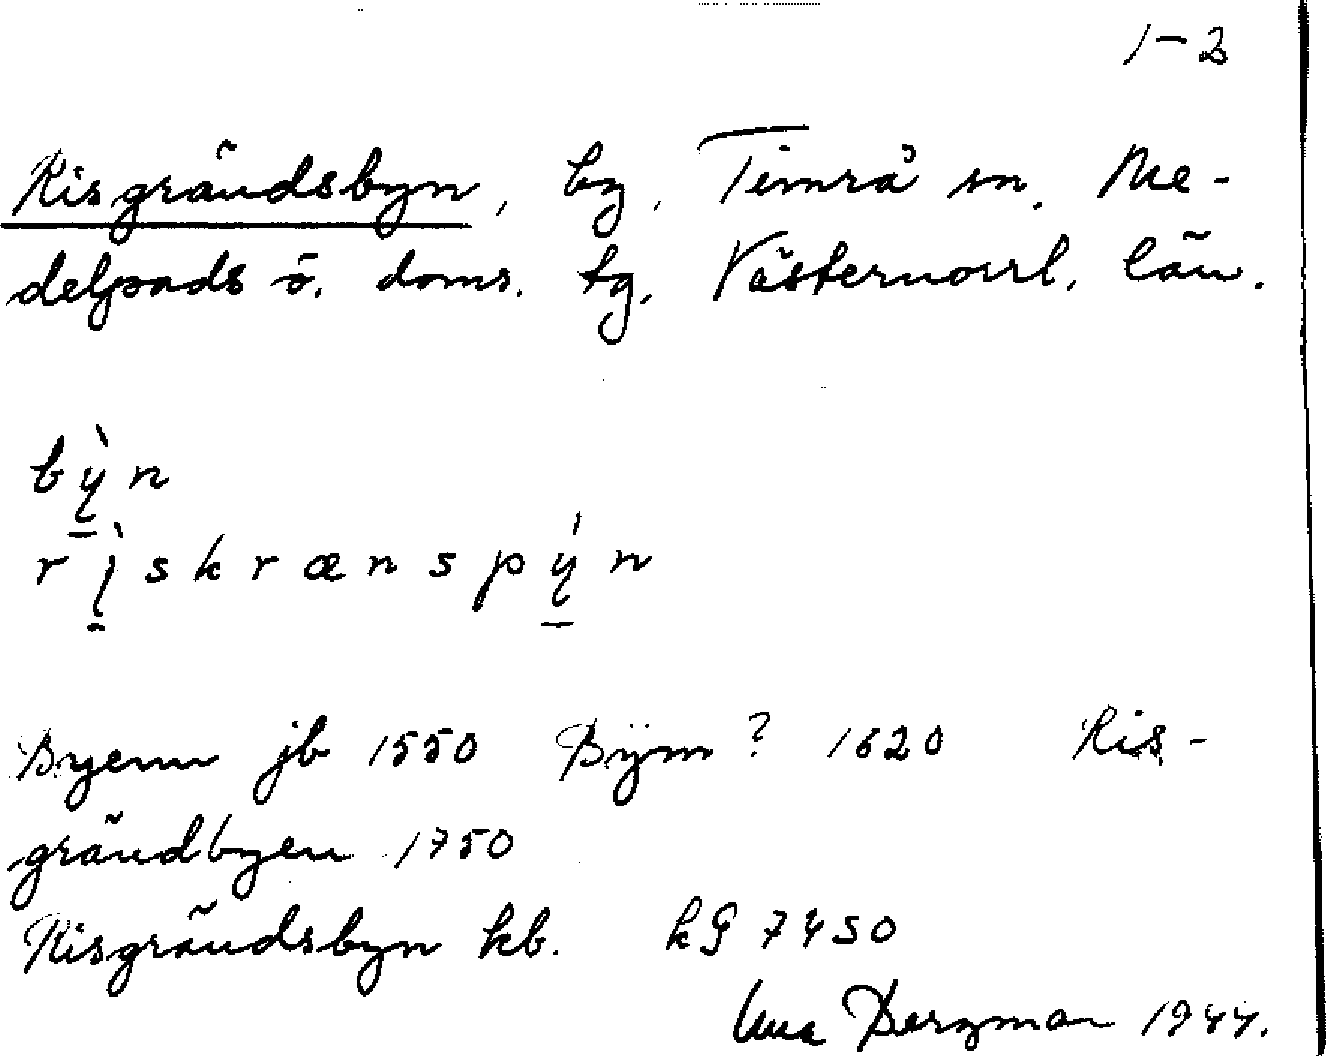 1-2
Risgrändsbyn, by, Timrå sn. Me-
delpads ö. doms. tg, Västernorrl. län.
bỳn
rìskrænspýn
Byenn jb 1550 Bÿm? 1620 Ris-
grändbyen 1750
Risgrändsbyn kb. kG 7450
Bergman 1944.